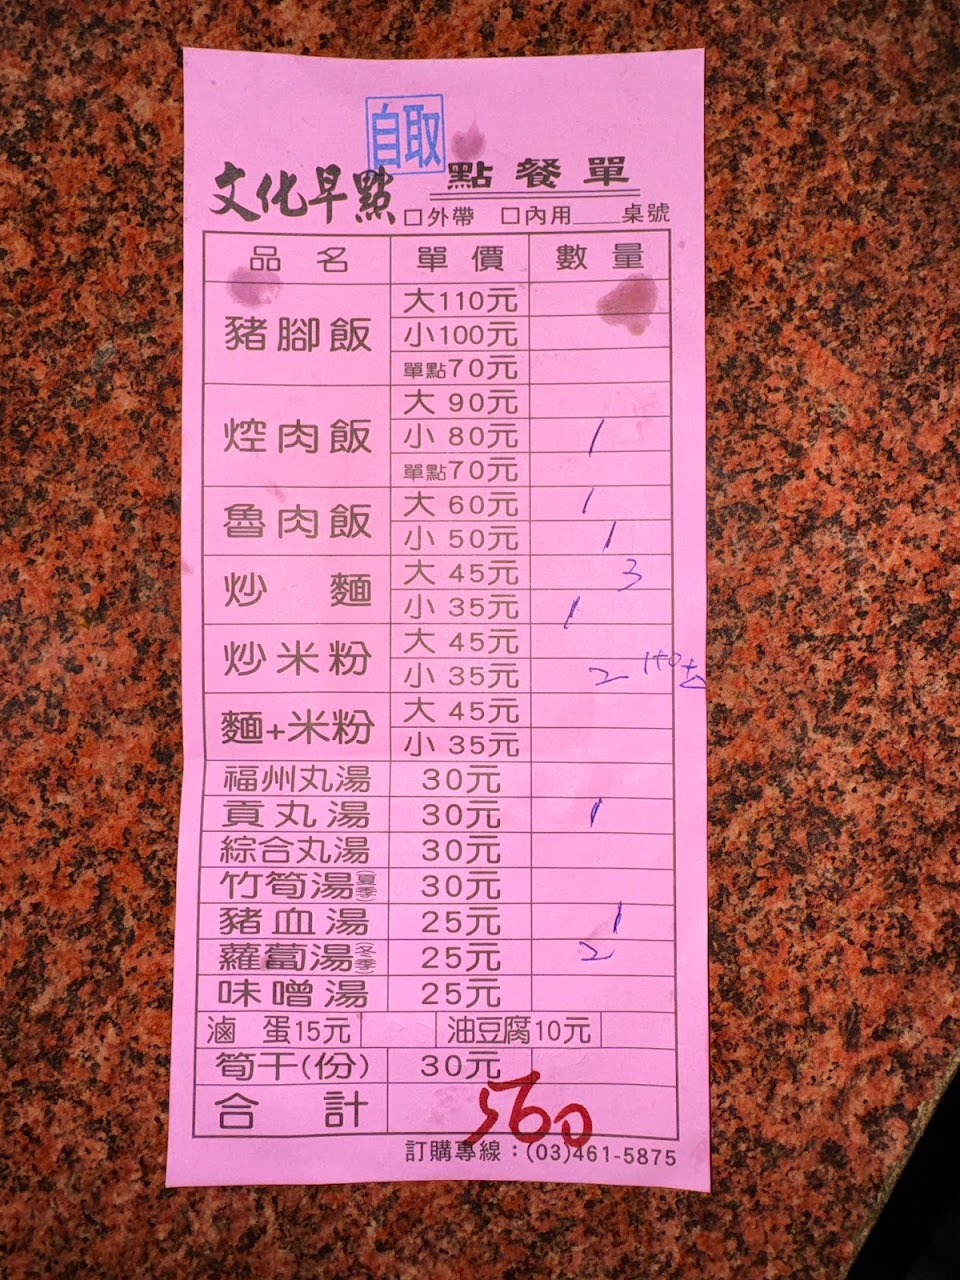 自取
文化早點 點餐單
□外帶 □內用____桌號
品名 單價 數量
豬腳飯 大110元
小100元
單點70元
焢肉飯 大 90元
小 80元 1
單點70元
魯肉飯 大 60元 1
小 50元 1
炒麵 大 45元 3
小 35元 1
炒米粉 大 45元
小 35元 2
麵+米粉 大 45元
小 35元
福州丸湯 30元
貢丸湯 30元 1
綜合丸湯 30元
竹筍湯(夏季) 30元
豬血湯 25元 1
蘿蔔湯(冬季) 25元 2
味噌湯 25元
滷蛋15元 油豆腐10元
筍干(份) 30元
合計 560
訂購專線：(03)461-5875